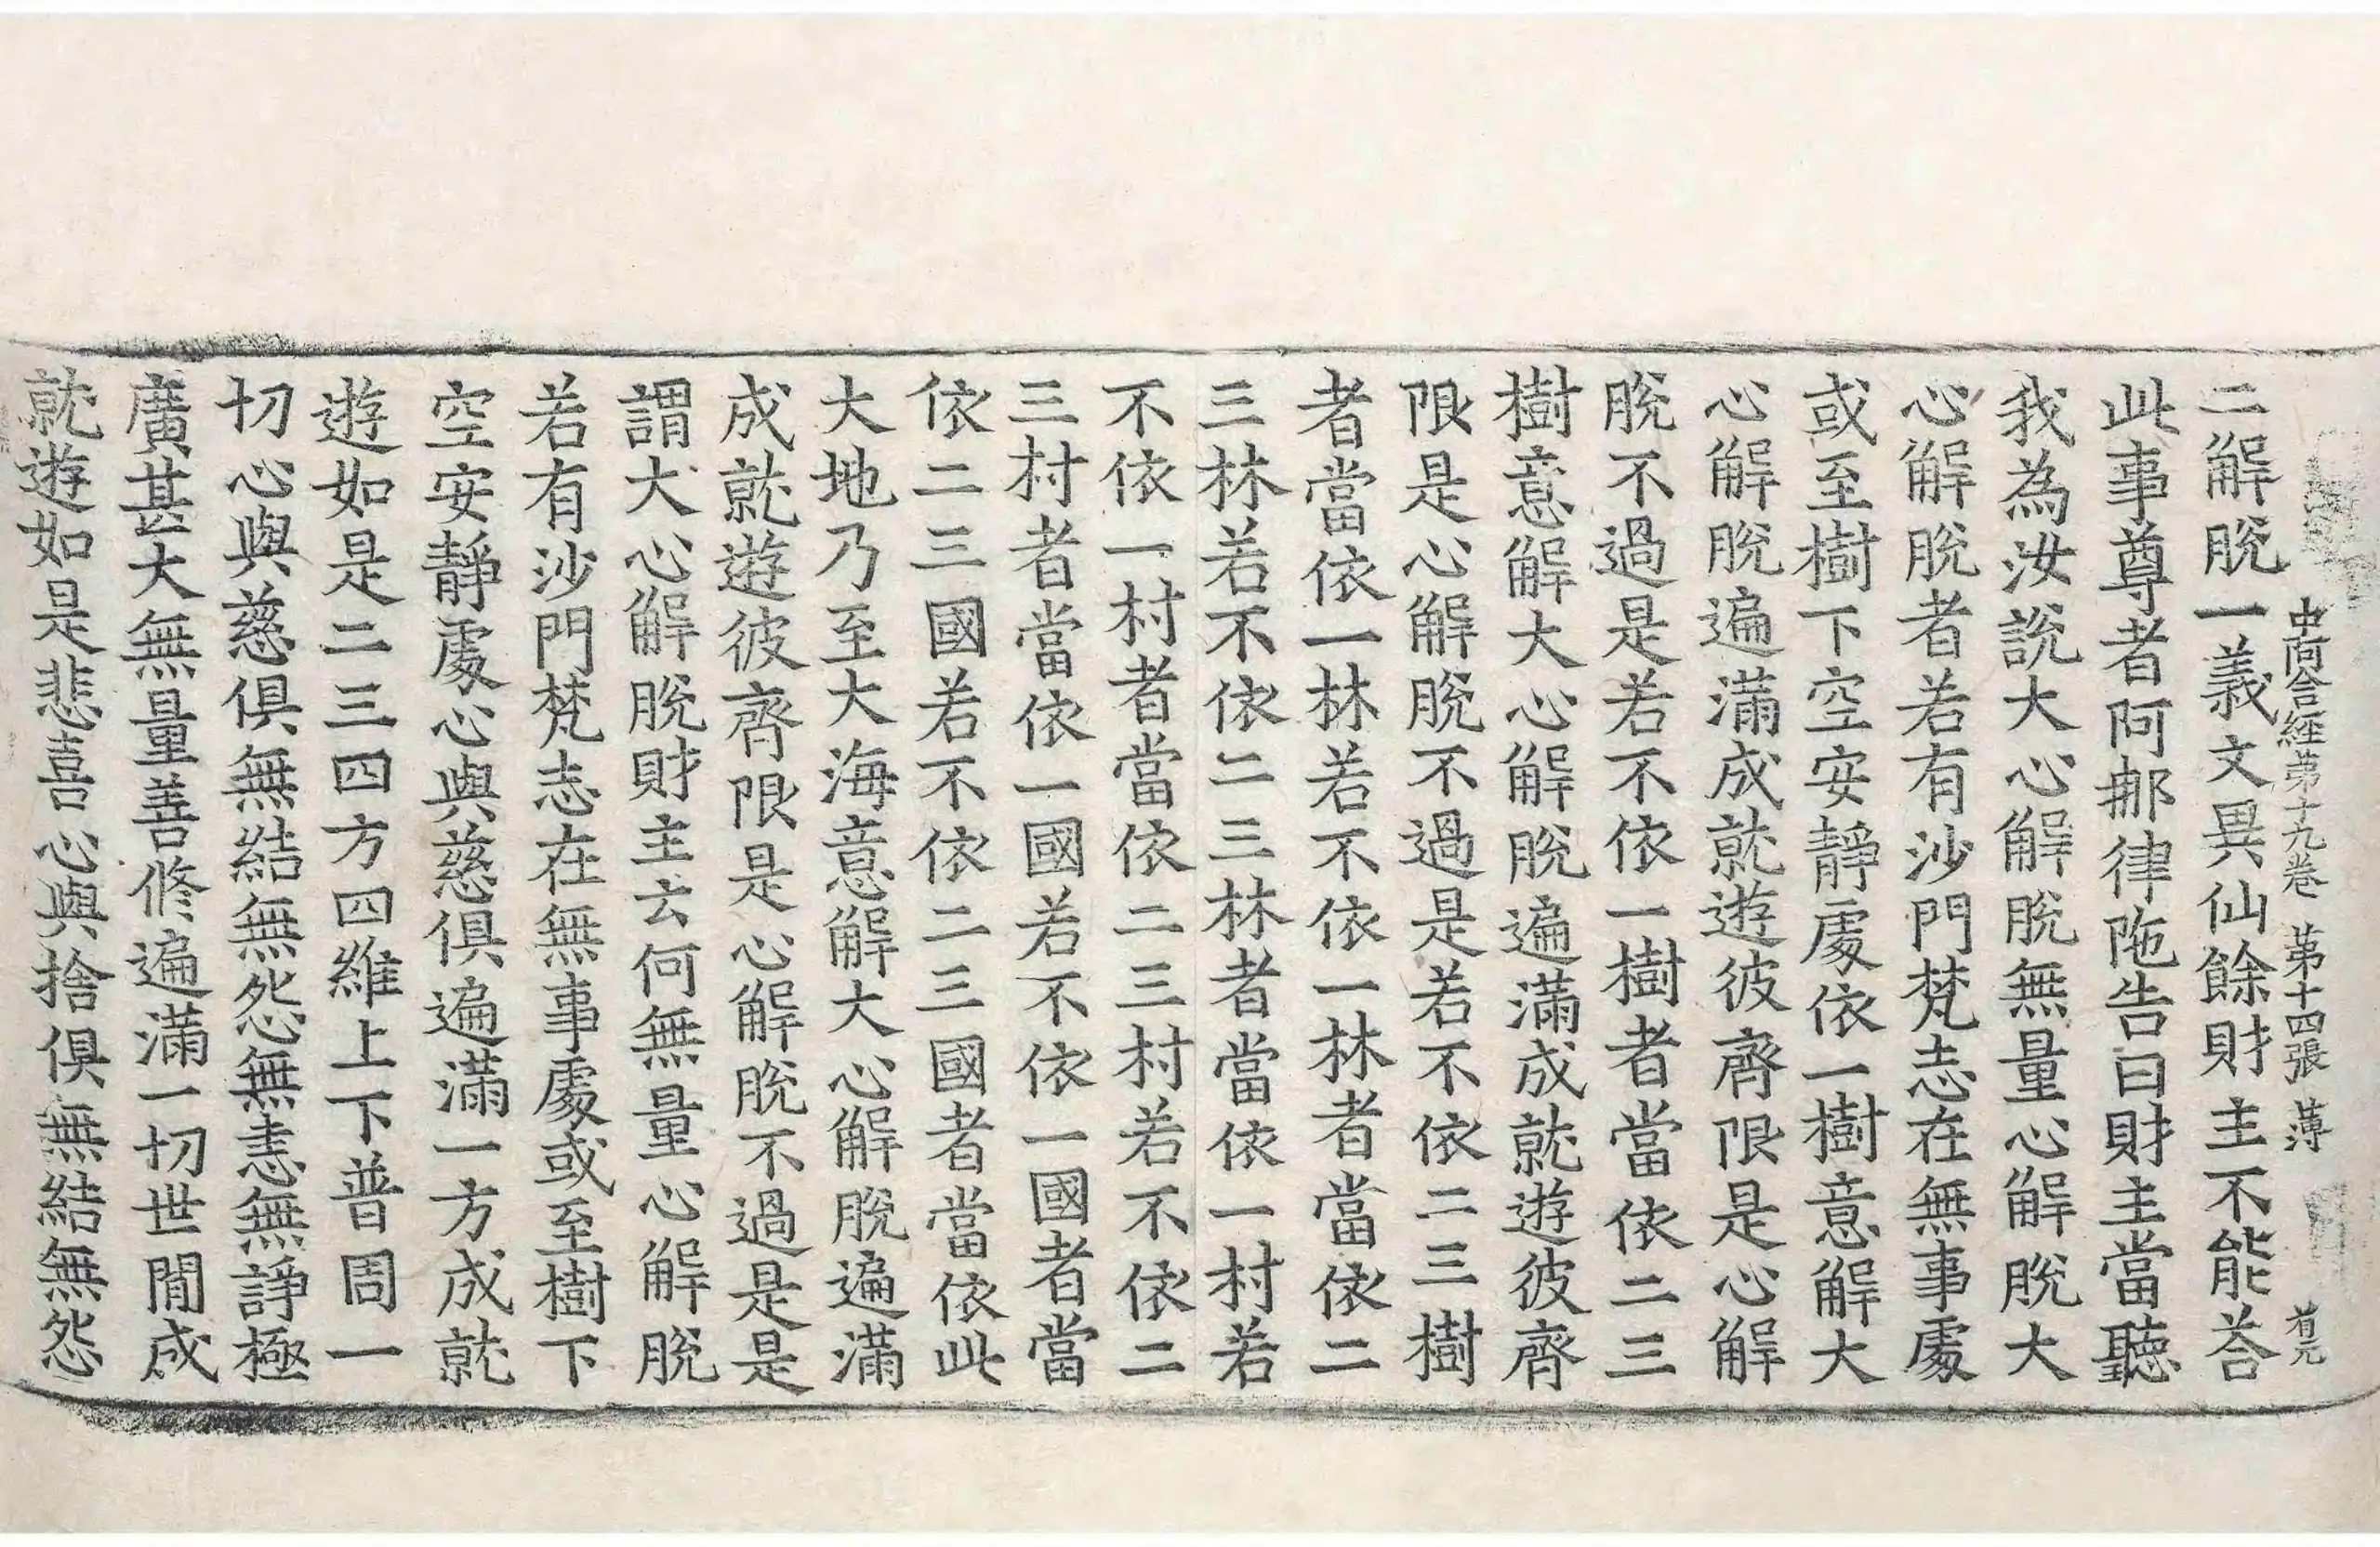 中阿含経苐十九巻　苐十四張　薄
二解脫一義文異仙餘財主不能荅
此事尊者阿那律陁告曰財主當聽
我為汝說大心解脫無量心解脫大
心解脫者若有沙門梵志在無事處
或至樹下空安靜處依一樹意解大
心解脫遍滿成就遊彼齊限是心解
脫不過是若不依一樹者當依二三
樹意解大心解脫遍滿成就遊彼齊
限是心解脫不過是若不依二三樹
者當依一林若不依一林者當依二
三林若不依二三林者當依一村若
不依一村者當依二三村若不依二
三村者當依一國若不依一國者當
依二三國若不依二三國者當依此
大地乃至大海意解大心解脫遍滿
成就遊彼齊限是心解脫不過是是
謂大心解脫財主云何無量心解脫
若有沙門梵志在無事處或至樹下
空安靜處心與慈俱遍滿一方成就
遊如是二三四方四維上下普周一
切心與慈俱無結無怨無恚無諍極
廣甚大無量善修遍滿一切世閒成
就遊如是悲喜心與捨俱無結無怨